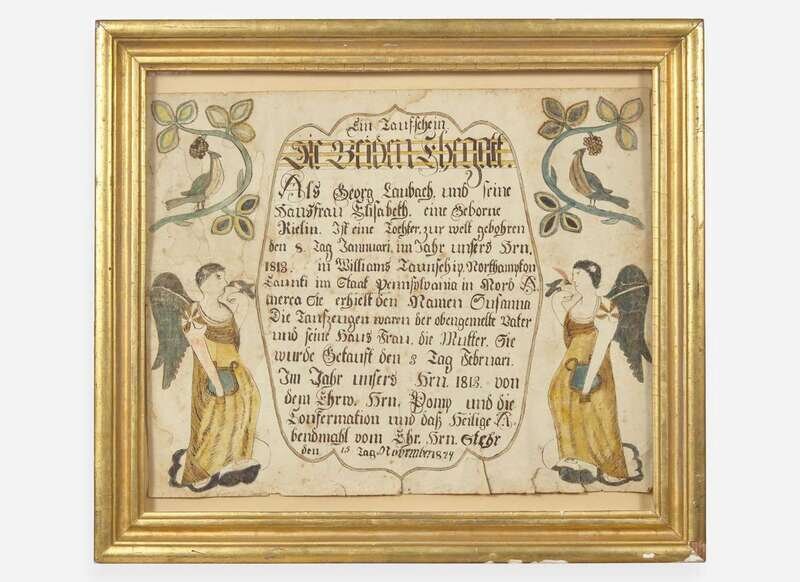 Ein Taufschein.
Die Beiden Ehegatt.
Als Georg Laubach, und seine
Hausfrau Elisabeth. eine Geborne
Rielin. Ist eine Tochter, zur welt gebohren
den 8. Tag Jannuari, im Jahr unsers Hrn.
1813. in Williams Taunschip, Northampton
Caunti im Staat Pennsylvania in Nord A
merca Sie erhielt den Namen Susanna
Die Taufzeugen waren der obengemelte Vater
und seine Haus Frau. die Mutter. Sie
wurde Getauft den 8 Tag Februari.
Im Jahr unsers Hrn. 1813. von
dem Ehrw. Hrn. Pomy und die
Confermation und daß Heilige A
bendmahl vom Ehr. Hrn. Stehr
den 15 Tag November